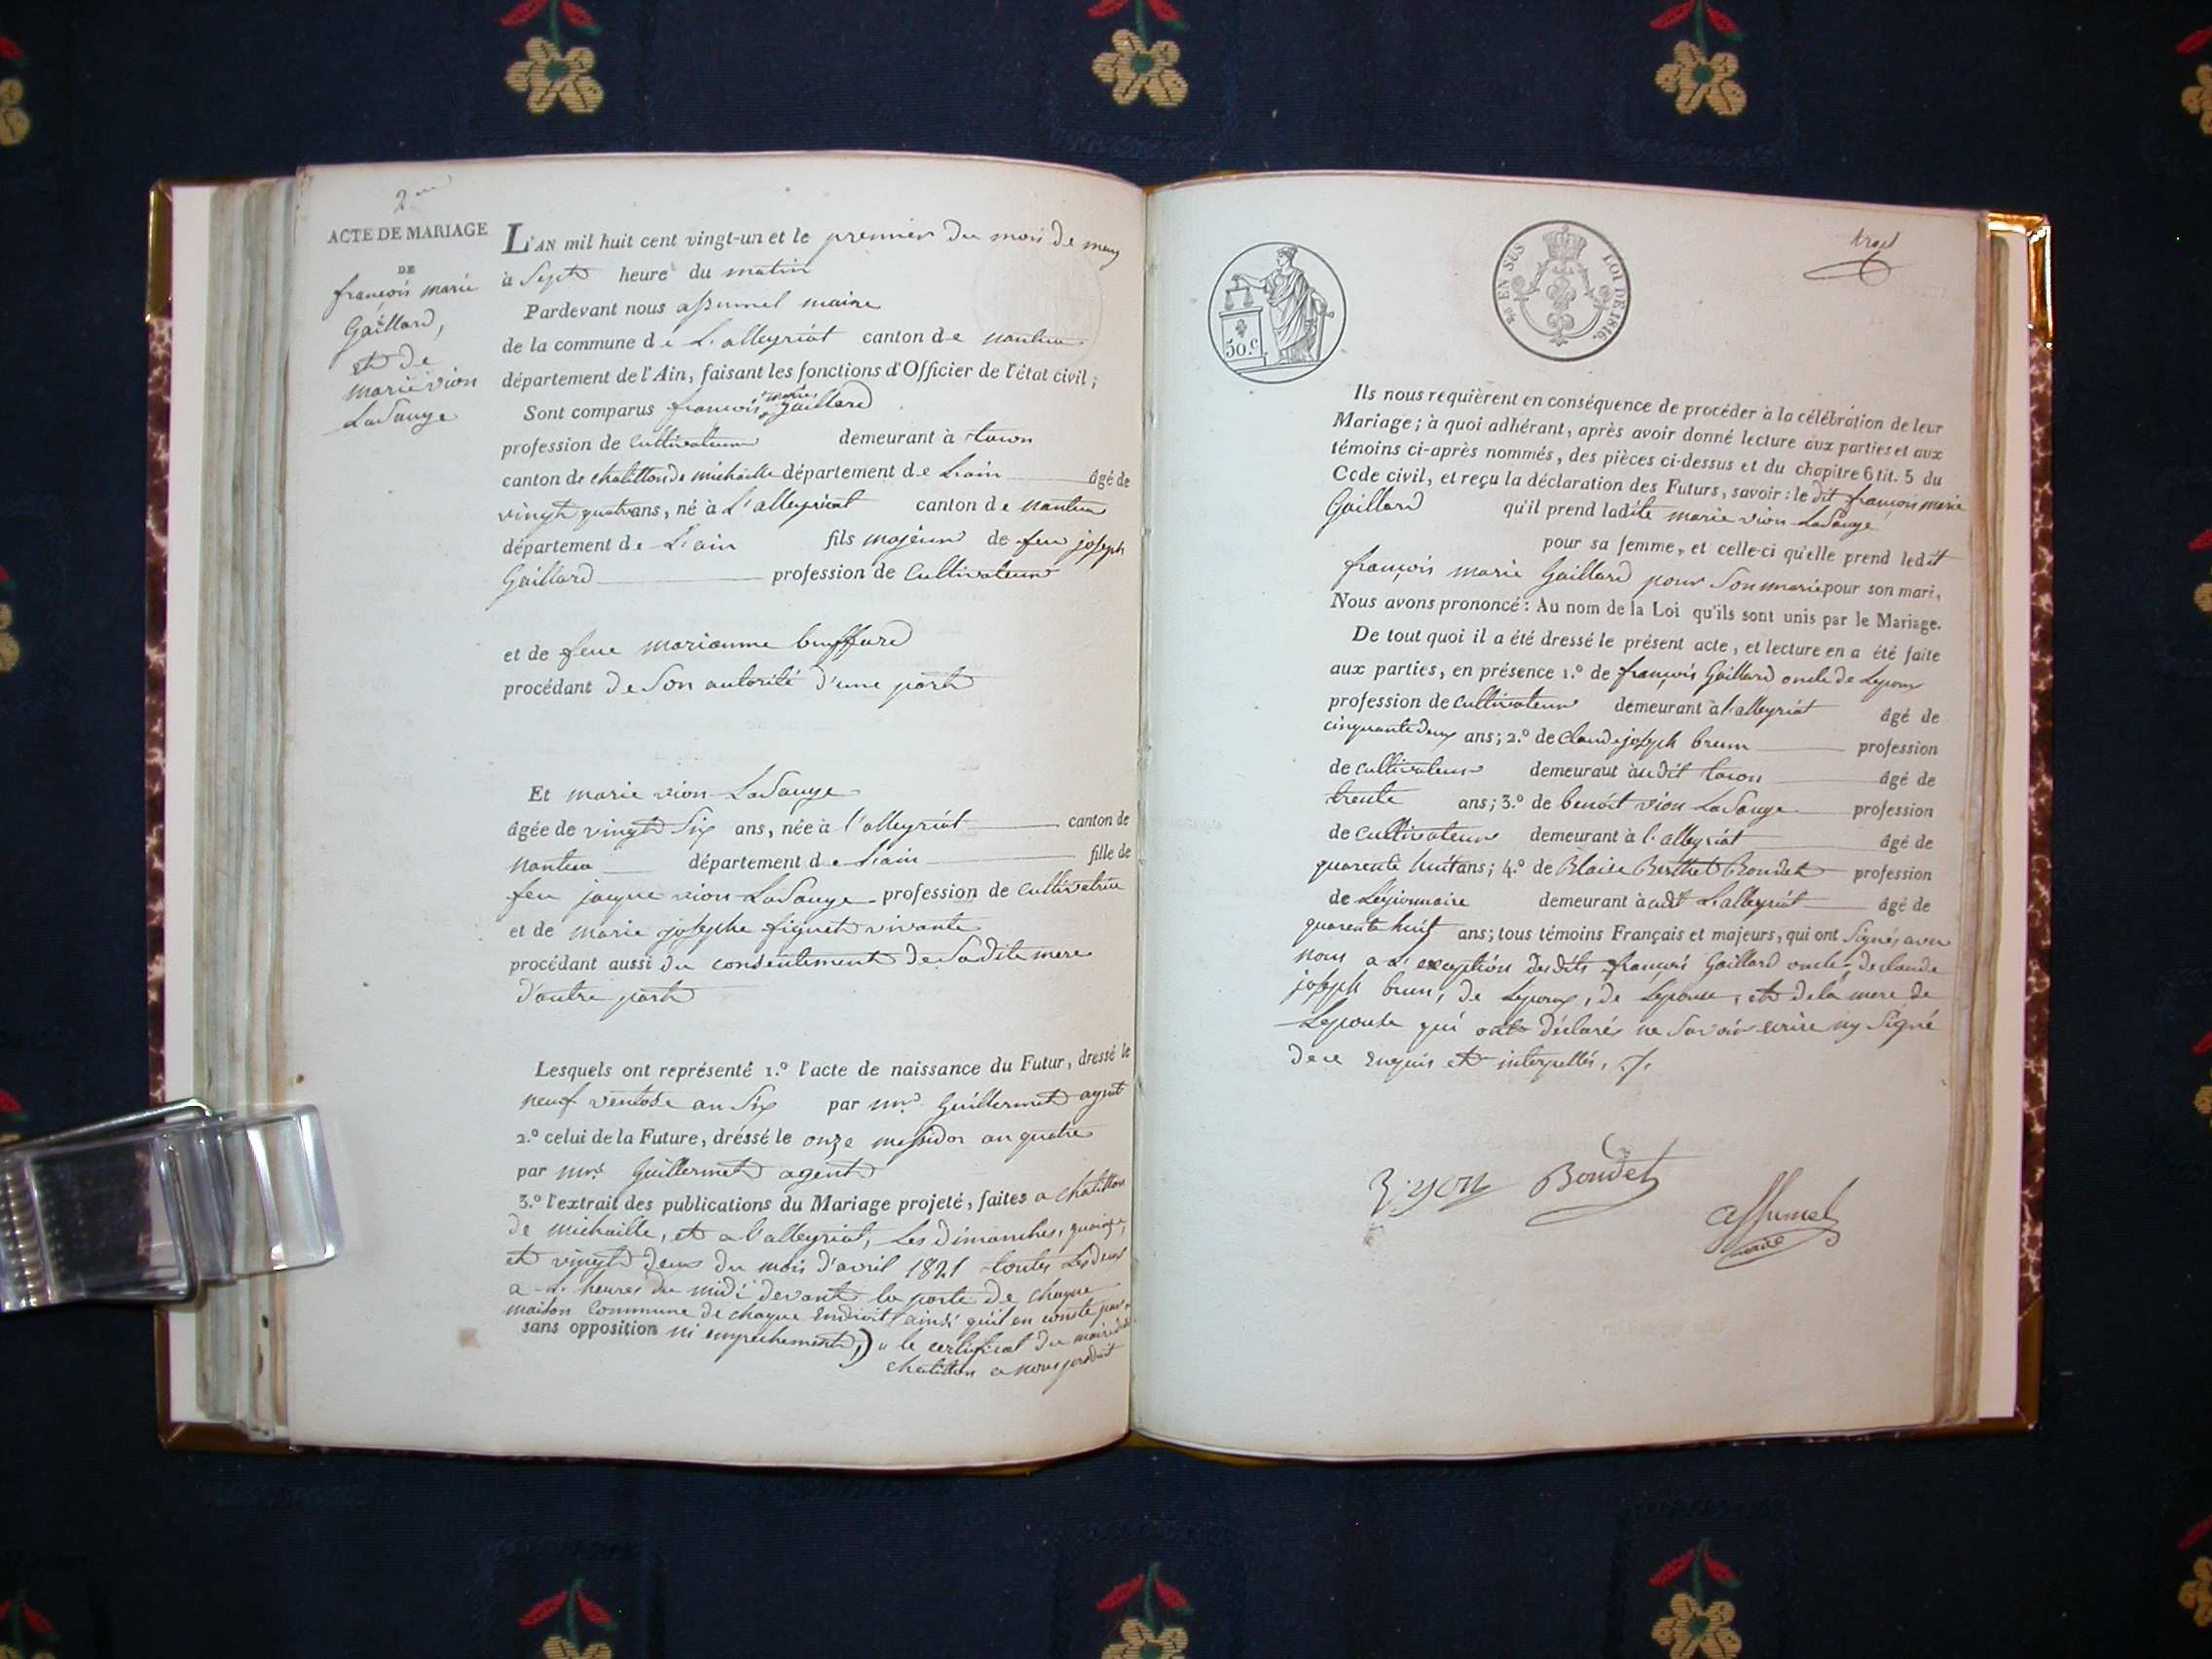 2me
ACTE DE MARIAGE
DE
françois marie
Gaillard,
et de
marie vion
LaSauge
L'AN mil huit cent vingt-un et le premier du mois de may
à Sept heure du matin
Pardevant nous assumel maire
de la commune de L'alleyriat canton de nantua
département de l'Ain, faisant les fonctions d'Officier de l'état civil;
Sont comparus françois marie Gaillard
profession de Cultivateur demeurant à tacon
canton de chatillon de michaille département de L'ain âgé de
vingt quatre ans, né à L'alleyriat canton de nantua
département de L'ain fils majeur de feu joseph
Gaillard profession de Cultivateur
et de feue marianne buffard
procédant de Son autorité d'une part
Et marie vion LaSauge
âgée de vingt Six ans, née à l'alleyriat canton de
nantua département de L'ain fille de
feu jacque vion LaSauge profession de Cultivatrice
et de marie josephe figuet vivante
procédant aussi du consentement de Sadite mere
d'autre part
Lesquels ont représenté 1.º l'acte de naissance du Futur, dressé le
neuf ventose an Six par mr. Guillermet agent
2.º celui de la Future, dréssé le onze messidor an quatre
par mr. Guillermet agent
3.º l'extrait des publications du Mariage projeté, faites a chatillon
de michaille, et a l'alleyriat, Les dimanches, quinze,
et vingt deux du mois d'avril 1821 toutes Les deux
a L' heures du midi devant la porte de chaque
maison Commune de chaque Endroit (ainsi qu'il en conste par
sans opposition ni empechement,) le certificat du maire
chatillon a nous produit
50.c
EN SUS LOI DE 1816.
Ils nous requièrent en conséquence de procéder à la célébration de leur
Mariage; à quoi adhérant, après avoir donné lecture aux parties et aux
témoins ci-après nommés, des pièces ci-dessus et du chapitre 6 tit. 5 du
Code civil, et reçu la déclaration des Futurs, savoir: le dit françois marie
Gaillard qu'il prend ladite marie vion LaSauge
pour sa femme, et celle-ci qu'elle prend ledit
françois marie Gaillard pour Son marie pour son mari,
Nous avons prononcé: Au nom de la Loi qu'ils sont unis par le Mariage.
De tout quoi il a été dressé le présent acte, et lecture en a été faite
aux parties, en présence 1.º de françois Gaillard oncle de Lepoux
profession de Cultivateur demeurant à l'alleyriat âgé de
cinquante deux ans; 2.º de Claude joseph brun profession
de cultivateur demeurant à udit tacon âgé de
trente ans; 3.º de benoit vion LaSauge profession
de Cultivateur demeurant à l'alleyriat âgé de
quarente huit ans; 4.º de Blaise Berthet Bondet profession
de Légionnaire demeurant à udt L'alleyriat âgé de
quarente huit ans; tous témoins Français et majeurs, qui ont Signés avec
nous a L'exception desdits françois Gaillard oncle de claude
joseph brun, de Lepoux, de Lepouse, et de la mere de
Lepouse qui ont déclarés ne Savoir ecrire ny Signé
de ce Enquis et interpellés. /.
vyon Bondet
assumel
maire